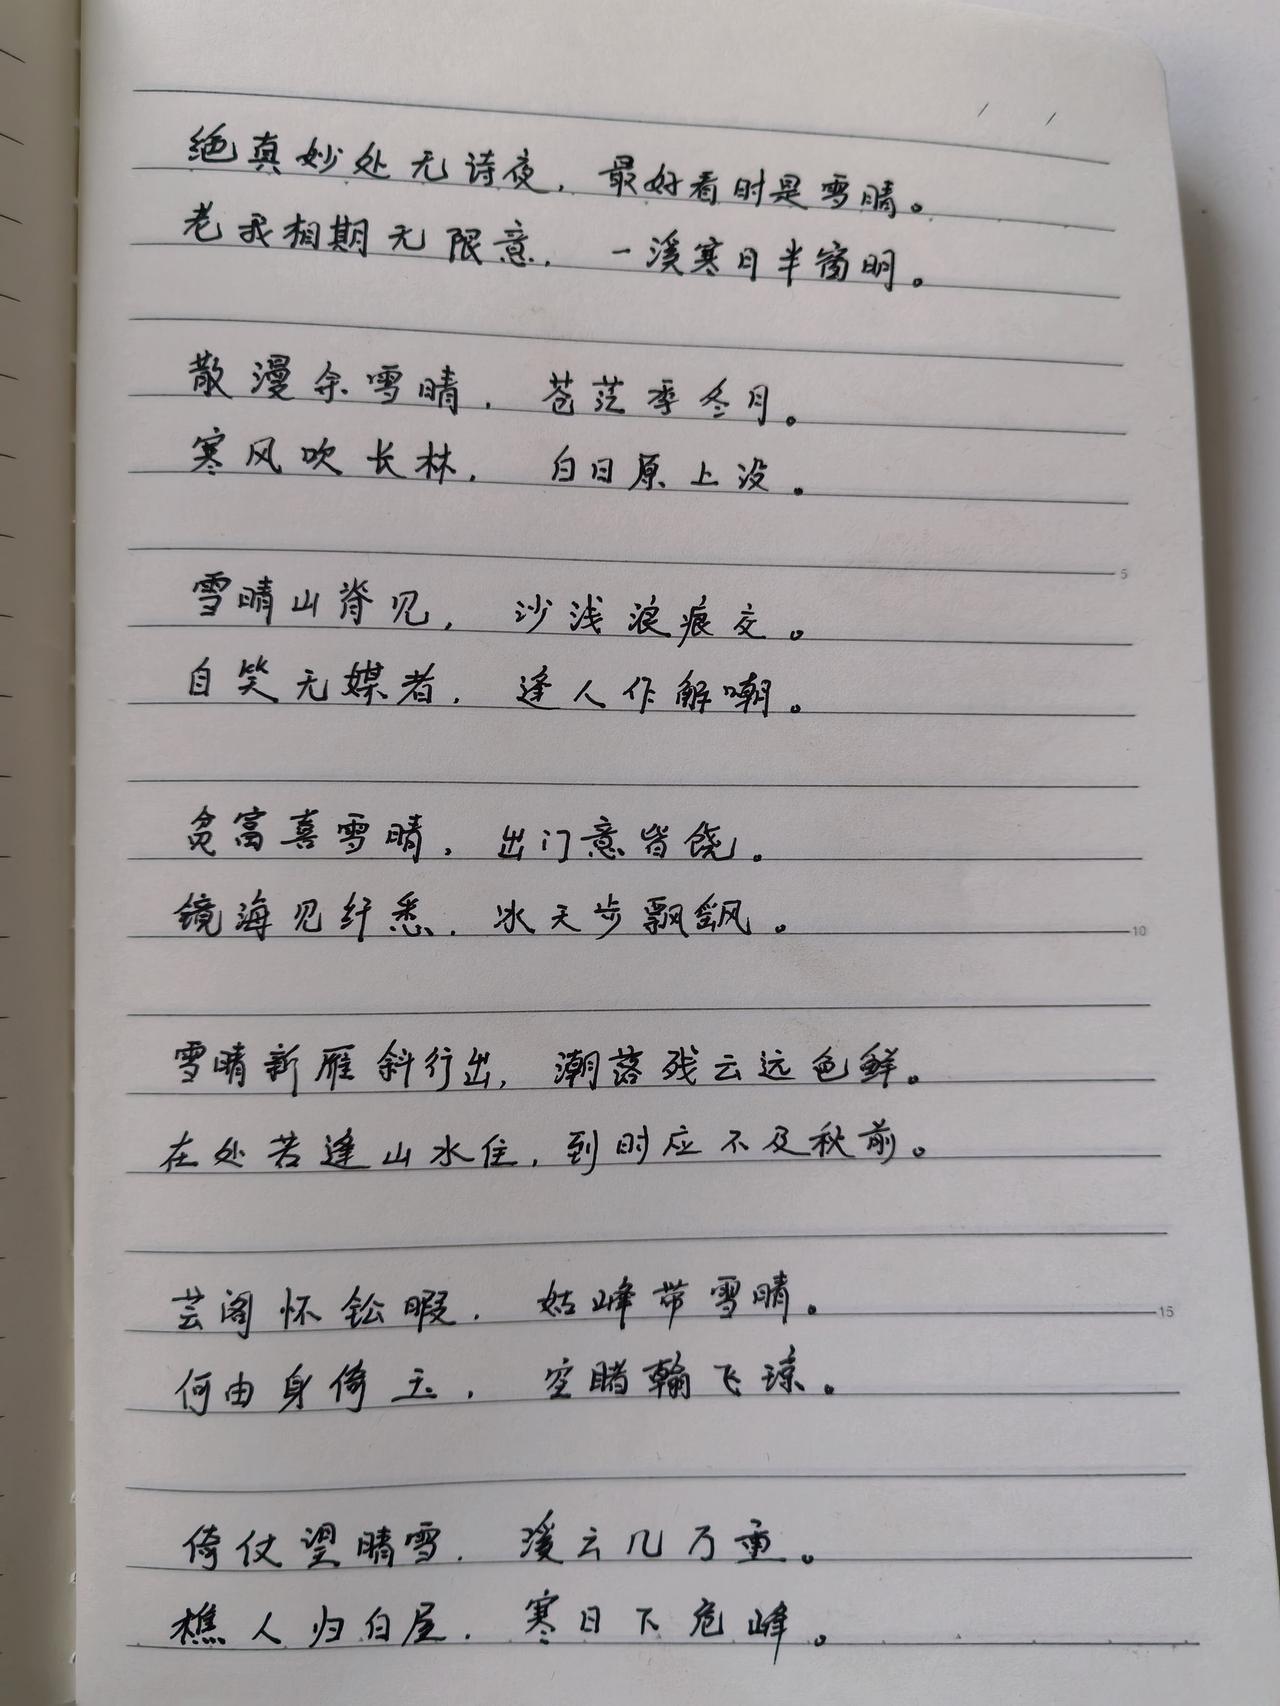 绝真妙处无诗夜，最好看时是雪晴。
老我相期无限意，一溪寒日半窗明。
散漫余雪晴，苍茫季冬月。
寒风吹长林，白日原上没。
5
雪晴山脊见，沙浅浪痕交。
自笑无媒者，逢人作解嘲。
贫富喜雪晴，出门意皆饶。
镜海见纤悉，冰天步飘飖。
10
雪晴新雁斜行出，潮落残云远色鲜。
在处若逢山水住，到时应不及秋前。
芸阁怀铅暇，姑峰带雪晴。
15
何由身倚玉，空睹翰飞琼。
倚仗望晴雪，溪云几万重。
樵人归白屋，寒日下危峰。